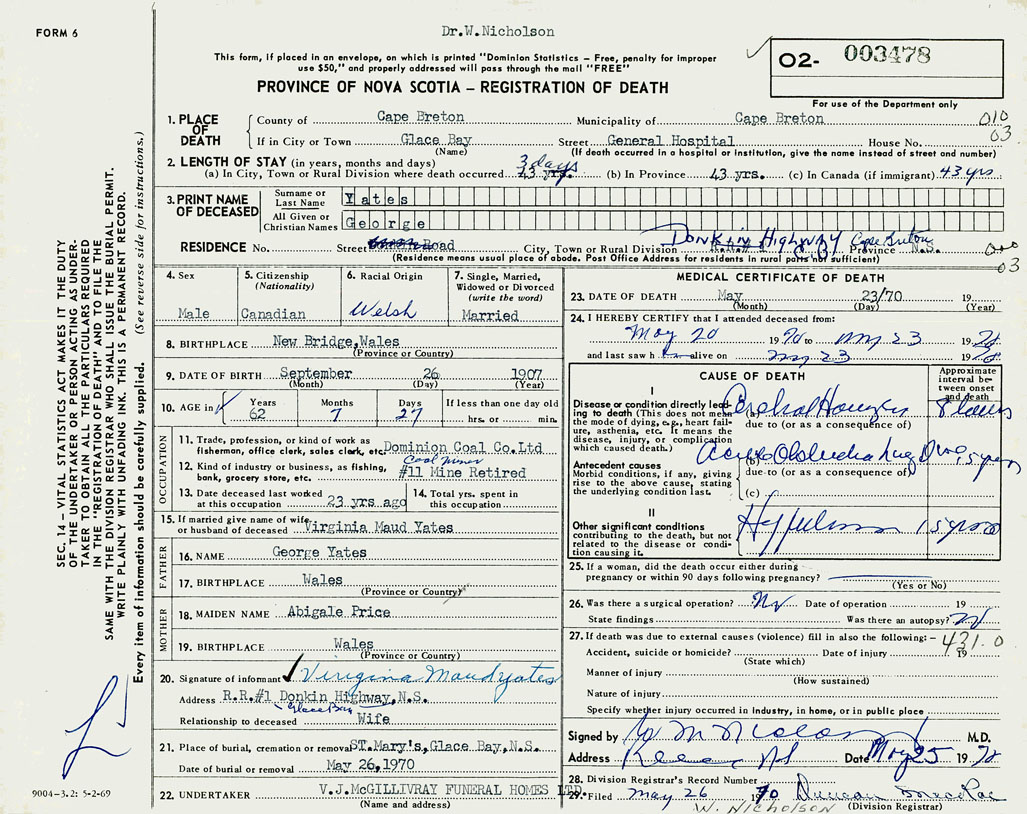 FORM 6
Dr.W.Nicholson
This form, if placed in an envelope, on which is printed "Dominion Statistics – Free, penalty for improper
use $50," and properly addressed will pass through the mail "FREE"
O2- 003478
PROVINCE OF NOVA SCOTIA – REGISTRATION OF DEATH
For use of the Department only
1. PLACE OF DEATH County of Cape Breton Municipality of Cape Breton 010
If in City or Town Glace Bay Street General Hospital House No. 03
(Name) (If death occurred in a hospital or institution, give the name instead of street and number)
2. LENGTH OF STAY (in years, months and days) 3 days
(a) In City, Town or Rural Division where death occurred 43 yrs. (b) In Province 43 yrs. (c) In Canada (if immigrant) 43 yrs
3. PRINT NAME OF DECEASED Surname or Last Name Yates
All Given or Christian Names George
RESIDENCE No. Street Road City, Town or Rural Division Donkin Highway Cape Breton Province N.S.
(Residence means usual place of abode. Post Office Address for residents in rural parts not sufficient) 03
4. Sex Male
5. Citizenship (Nationality) Canadian
6. Racial Origin Welsh
7. Single, Married, Widowed or Divorced (write the word) Married
8. BIRTHPLACE New Bridge, Wales
(Province or Country)
9. DATE OF BIRTH September 26 1907
(Month) (Day) (Year)
10. AGE in Years 62 Months 7 Days 27 If less than one day old
hrs. or min.
OCCUPATION
11. Trade, profession, or kind of work as
fisherman, office clerk, sales clerk, etc. Dominion Coal Co.Ltd
Coal Miner
12. Kind of industry or business, as fishing,
bank, grocery store, etc. #11 Mine Retired
13. Date deceased last worked at this occupation 23 yrs ago
14. Total yrs. spent in this occupation
15. If married give name of wife
or husband of deceased Virginia Maud Yates
FATHER
16. NAME George Yates
17. BIRTHPLACE Wales
(Province or Country)
MOTHER
18. MAIDEN NAME Abigale Price
19. BIRTHPLACE Wales
(Province or Country)
20. Signature of informant Viregina Maud Yates
Address R.R.#1 Donkin Highway, N.S.
Glace Bay
Relationship to deceased Wife
21. Place of burial, cremation or removal ST.Mary's,Glace Bay,N.S.
Date of burial or removal May 26,1970
22. UNDERTAKER V.J.McGILLIVRAY FUNERAL HOMES LTD.
(Name and address)
MEDICAL CERTIFICATE OF DEATH
23. DATE OF DEATH May 23/70 19
(Month) (Day) (Year)
24. I HEREBY CERTIFY that I attended deceased from:
May 20 1970 to May 23 1970
and last saw h im alive on May 23 1970
CAUSE OF DEATH
Approximate interval between onset and death
I
Disease or condition directly leading to death (This does not mean the mode of dying, e.g., heart failure, asthenia, etc. It means the disease, injury, or complication which caused death.)
(a)
due to (or as a consequence of)
Antecedent causes
Morbid conditions, if any, giving rise to the above cause, stating the underlying condition last.
(b)
due to (or as a consequence of)
(c)
II
Other significant conditions
contributing to the death, but not related to the disease or condition causing it.
25. If a woman, did the death occur either during
pregnancy or within 90 days following pregnancy?
(Yes or No)
26. Was there a surgical operation? No Date of operation 19
State findings Was there an autopsy? No
27. If death was due to external causes (violence) fill in also the following: – 431.0
Accident, suicide or homicide? Date of injury 19
(State which)
Manner of injury
(How sustained)
Nature of injury
Specify whether injury occurred in industry, in home, or in public place
Signed by W M Nicholson M.D.
Address N S Date May 25 1970
28. Division Registrar's Record Number
29. Filed May 26 1970 Duncan MacRae
(Division Registrar)
W. NICHOLSON
SEC. 14 – VITAL STATISTICS ACT MAKES IT THE DUTY
OF THE UNDERTAKER OR PERSON ACTING AS UNDER-
TAKER TO OBTAIN ALL THE PARTICULARS REQUIRED
IN THE "REGISTRATION OF DEATH" AND TO FILE THE
SAME WITH THE DIVISION REGISTRAR WHO SHALL ISSUE THE BURIAL PERMIT.
WRITE PLAINLY WITH UNFADING INK. THIS IS A PERMANENT RECORD.
Every item of information should be carefully supplied. (See reverse side for instructions.)
9004-3.2: 5-2-69